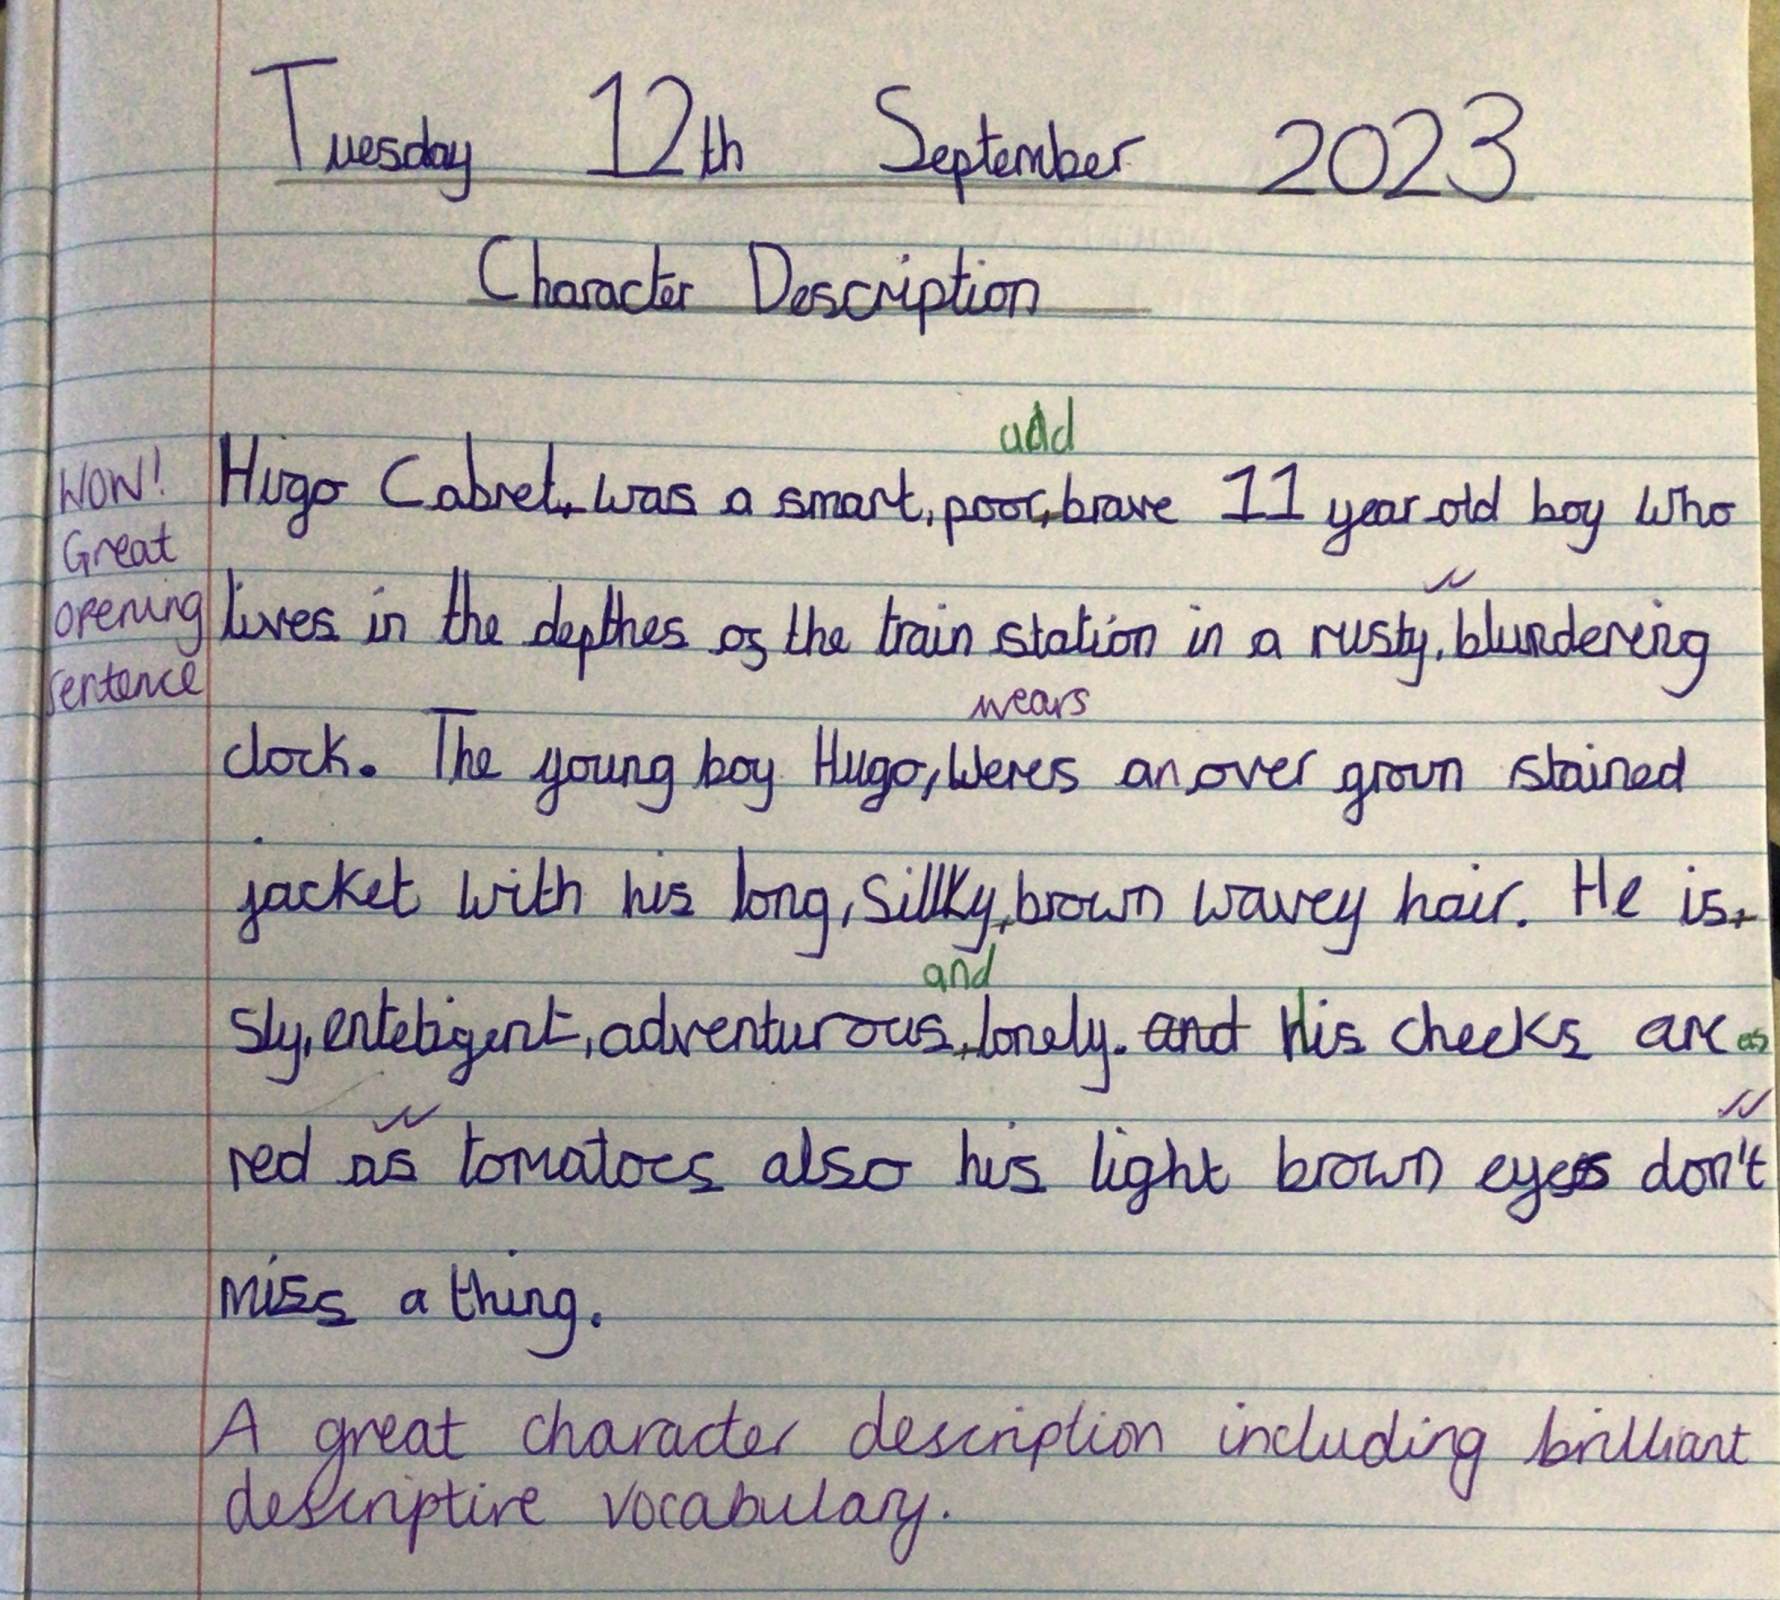 Tuesday 12th September 2023
Character Description
add
WOW! Hugo Cabret, was a smart, poor, brave 11 year old boy who
Great
opening lives in the depthes of the train station in a rusty, blundering
sentence
wears
clock. The young boy Hugo, Weres an over grown stained
jacket with his long, Sillky, brown wavey hair. He is,
and
Sly, enteligent, adventurous, lonely. and His cheeks are as
red as tomatoes also his light brown eyes don't
miss a thing.
A great character description including brilliant
descriptive vocabulary.